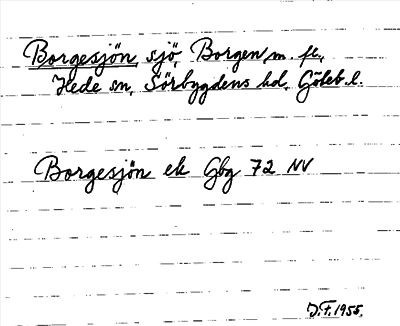 Borgesjön, sjö, Borgen m. fl.,
Hede sn, Sörbygdens hd, Göteb. l.
Borgesjön ek Gbg 72 NV
D.F. 1955.